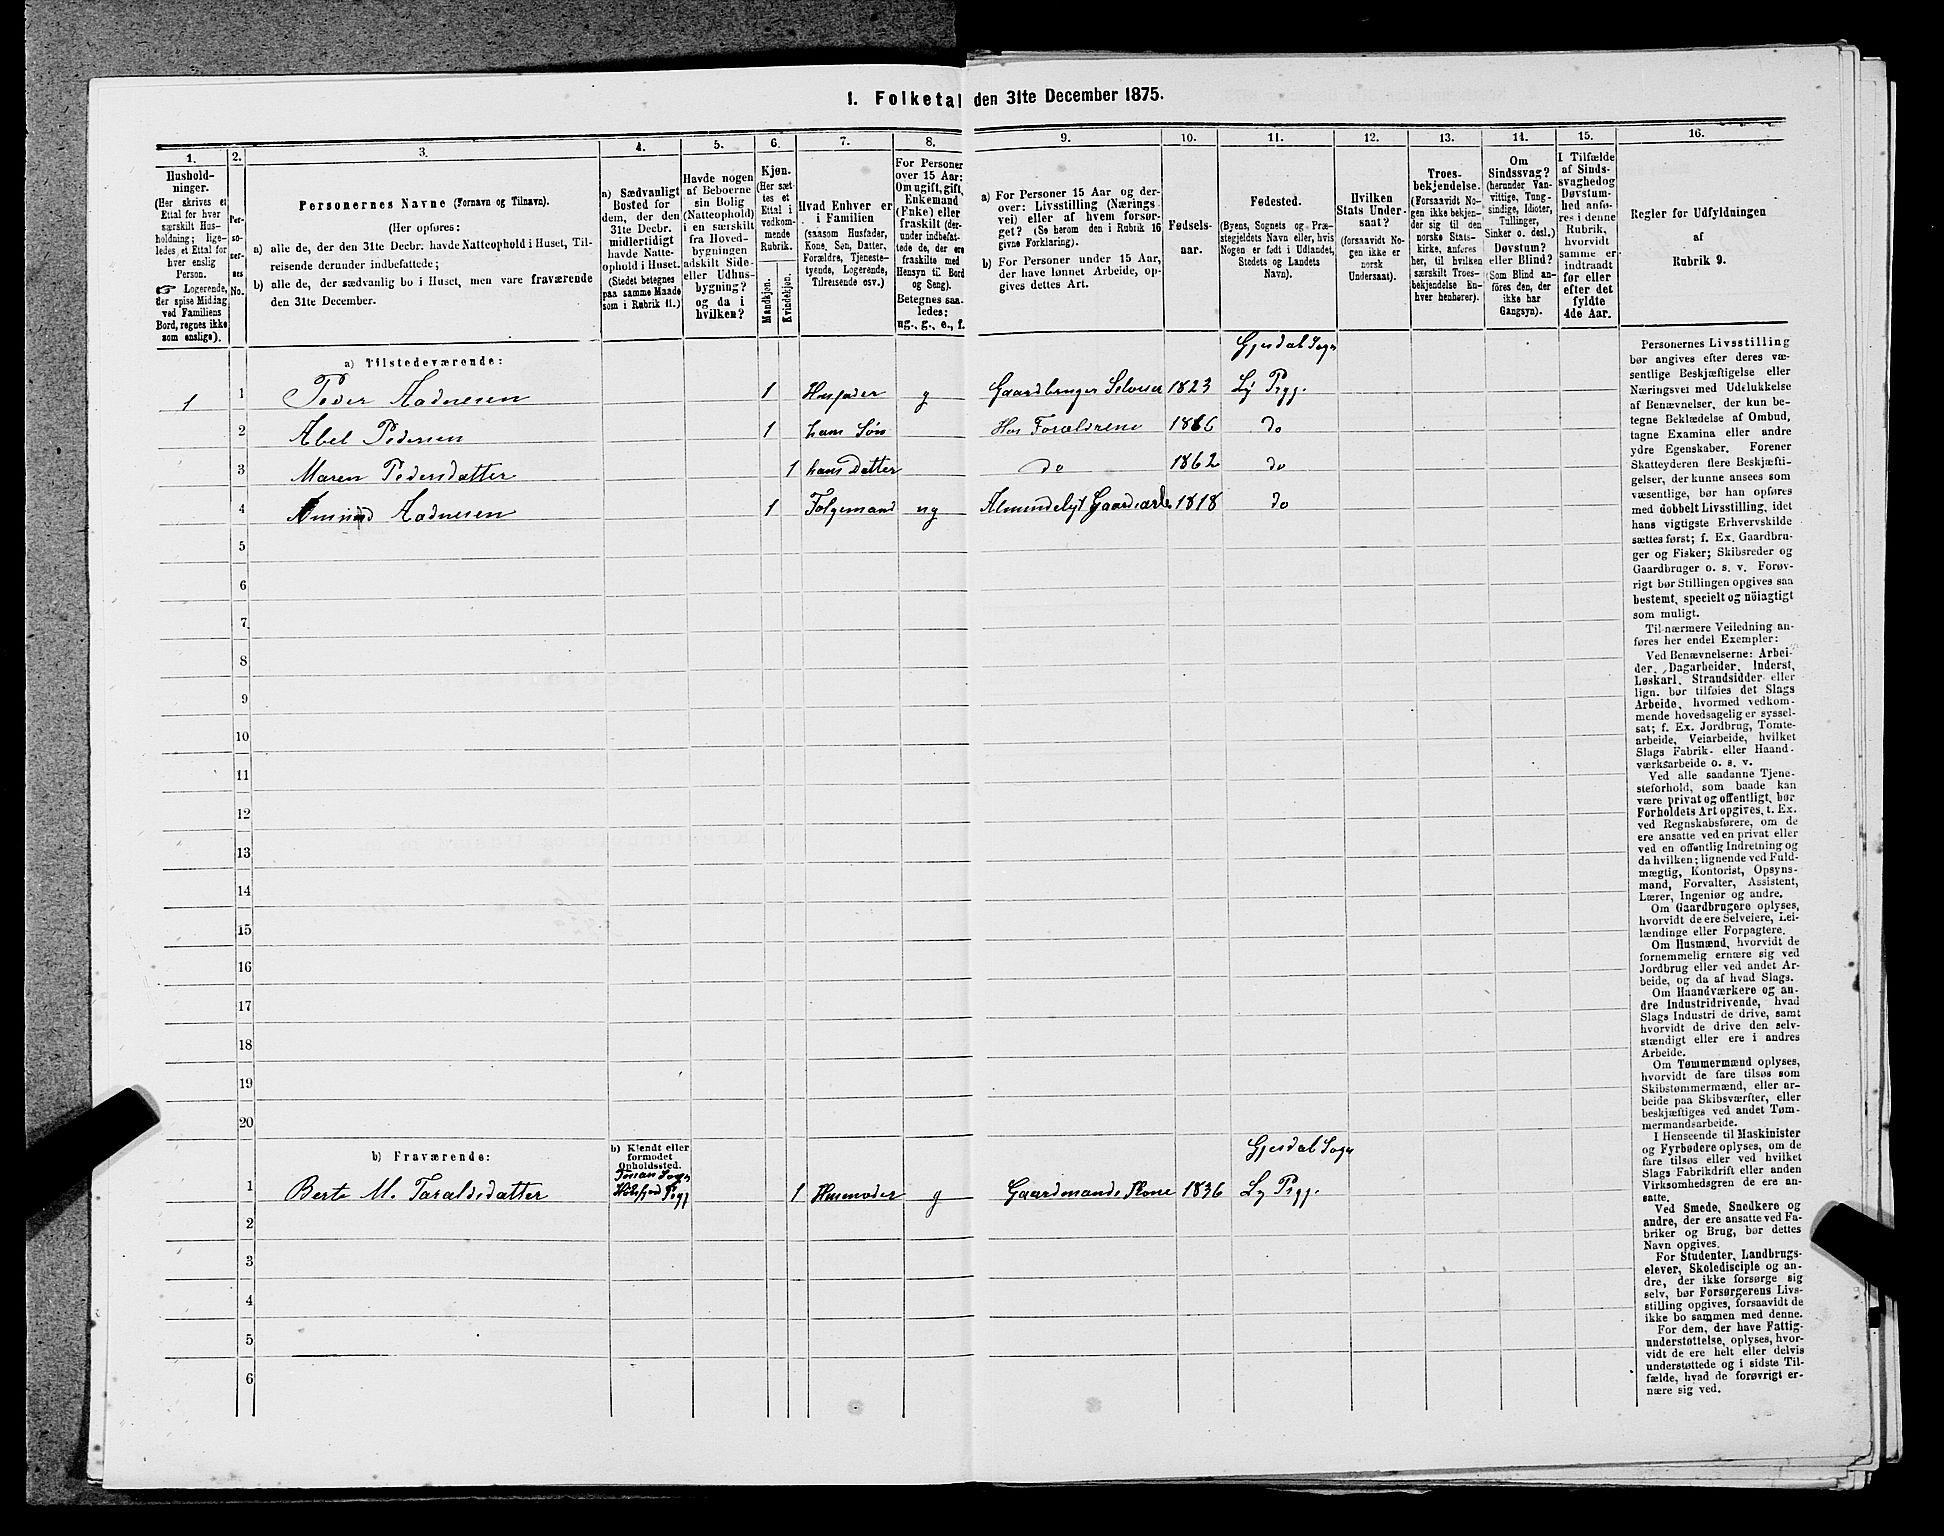 1. Folketal den 31te December 1875.
1.
2.
3.
4.
5.
6.
7.
8.
9.
10.
11.
12.
13.
14.
15.
16.
Hushold-
ninger.
(Her skrives et
Ettal for hver
særskilt Hus-
holdning; lige-
ledes et Ettal for
hver enslig
Person.
☞ Logerende,
der spise Middag
ved Familiens
Bord, regnes ikke
som enslige).
Per-
so-
ner-
nes
No.
Personernes Navne (Fornavn og Tilnavn).
(Her opføres:
a) alle de, der den 31te Decbr. havde Natteophold i Huset, Til-
reisende derunder indbefattede;
b) alle de, der sædvanlig bo i Huset, men vare fraværende
den 31te December.
a) Sædvanligt
Bosted for
dem, der den
31te Decbr.
midlertidigt
havde Natte-
ophold i Huset.
(Stedet betegnes
paa samme Maade
som i Rubrik 11.)
Havde nogen
af Beboerne
sin Bolig
(Natteophold)
i en særskilt
fra Hovedbygningen
adskilt Side-
eller Udhus-
bygning?
og da i
hvilken?
Kjøn.
(Her sæt-
tes et
Ettal i
vedkom-
mende
Rubrik.
Mandkjøn.
Kvindekjøn.
Hvad Enhver er
i Familien
(saasom Husfader,
Kone, Søn, Datter,
Forældre, Tjeneste-
tyende, Logerende,
Tilreisende osv.)
For Personer
over 15 Aar:
Om ugift, gift,
Enkemand
(Enke) eller
fraskilt (der-
under indbefat-
tede de, der ere
fraskilte med
Hensyn til Bord
og Seng).
Betegnes saa-
ledes:
ug., g., e., f.
a) For Personer 15 Aar og der-
over: Livsstilling (Nærings-
vei) eller af hvem forsør-
get? (Se herom den i Rubrik 16
givne Forklaring).
b) For Personer under 15 Aar,
der have lønnet Arbeide, op-
gives dettes Art.
Fødsels-
aar.
Fødested.
(Byens, Sognets og Præ-
stegjeldets Navn eller, hvis
Nogen er født i Udlandet,
Stedets og Landets
Navn).
Hvilken
Stats Under-
saat?
(forsaavidt No-
gen ikke er
norsk
Undersaat).
Troes-
bekjendelse.
(Forsaavidt No-
gen ikke bekjen-
der sig til den
norske Stats-
kirke, anføres
her, til hvilken
særskilt Troes-
bekjendelse En-
hver henhører).
Om
Sindssvag?
(herunder Van-
vittige, Tung-
sindige, Idioter,
Tullinger,
Sinker o. desl.)
Døvstum?
eller Blind?
(Som Blind an-
føres den, der
ikke har
Gangsyn).
I Tilfælde
af Sinds-
svaghed og
Døvstum-
hed anfø-
res i denne
Rubrik,
hvorvidt
samme er
indtraadt
før eller
efter det
fyldte
4de Aar.
Regler for Udfyldningen
af
Rubrik 9.
a) Tilstedeværende:
Gjesdal Sogn
1 1 Peder Aadnesen 1 Husfader g Gaardbruger Selveier 1823 Ly Pgj.
2 Abel Pedersen 1 hans Søn Hos Forældrene 1866 do
3 Maren Pedersdatter 1 hans Datter do 1862 do
4 Amund Aadnesen 1 Følgemand ug Almindeligt Gaardsarb. 1818 do
5
6
7
8
9
10
11
12
13
14
15
16
17
18
19
20
b) Fraværende:
b) Kjendt eller
formodet
Opholdssted.
Gjesdal Sogn
1 Berte M. Taraldsdatter Sogn Pgj 1 Husmoder g Gaardmands Kone 1836 Ly Pgj.
2
3
4
5
6
Personernes Livsstilling
bør angives efter deres væ-
sentlige Beskjæftigelse eller
Næringsvei med Udelukkelse
af Benævnelser, der kun be-
tegne Beklædelse af Ombud,
tagne Examina eller andre
ydre Egenskaber. Forener
Skatteyderen flere Beskjæfti-
gelser, der kunne ansees som
væsentlige, bør han opføres
med dobbelt Livsstilling, idet
hans vigtigste Erhvervskilde
sættes først; f. Ex. Gaardbru-
ger og Fisker; Skibsreder og
Gaardbruger o. s. v. Forøv-
rigt bør Stillingen opgives saa
bestemt, specielt og nöiagtigt
som muligt.
Til nærmere Veiledning an-
føres her endel Exempler:
Ved Benævnelserne: Arbei-
der, Dagarbeider, Inderst,
Løskarl, Strandsidder eller
lign. bør tilføies det Slags
Arbeide, hvormed vedkom-
mende hovedsagelig er syssel-
sat; f. Ex. Jordbrug, Tomte-
arbeide, Veiarbeide, hvilket
Slags Fabrik- eller Haand-
værksarbeide o. s. v.
Ved alle saadanne Tjene-
steforhold, som baade kan
være privat og offentligt, bør
Forholdets Art opgives, t. Ex.
ved Regnskabsførere, om de
ere ansatte ved en privat eller
ved en offentlig Indretning og
da hvilken; lignende ved Fuld-
mægtig, Kontorist, Opsyns-
mand, Forvalter, Assistent,
Lærer, Ingeniør og andre.
Om Gaardbrugere oplyses,
hvorvidt de ere Selveiere, Lei-
lændinge eller Forpagtere.
Om Husmænd, hvorvidt de
fornemmelig ernære sig ved
Jordbrug eller ved andet Ar-
beide, og da af hvad Slags.
Om Haandværkere og an-
dre Industridrivende, hvad
Slags Industri de drive, samt
hvorvidt de drive den selv-
stændigt eller ere i andres
Arbeide.
Om Tømmermænd oplyses,
hvorvidt de fare tilsøs som
Skibstømmermænd, eller ar-
beide paa Skibsværfter, eller
beskjæftiges ved andet Tøm-
mermandsarbeide.
I Henseende til Maskinister
og Fyrbødere oplyses, om de
fare tilsøs eller ved hvilket
Slags Fabrikdrift eller anden
Virksomhedsgren de ere an-
satte.
Ved Smede, Snedkere og
andre, der ere ansatte ved Fa-
briker og Brug, bør dettes
Navn opgives.
For Studenter, Landbrugs-
elever, Skoledisciple og an-
dre, der ikke forsørge sig
selv, bør Forsørgerens Livs-
stilling opgives, forsaavidt de
ikke bo sammen med denne.
For dem, der have Fattig-
understøttelse, oplyses, hvor-
vidt de ere helt eller delvis
understøttede og i sidste Til-
fælde, hvad de forøvrigt er-
nære sig ved.